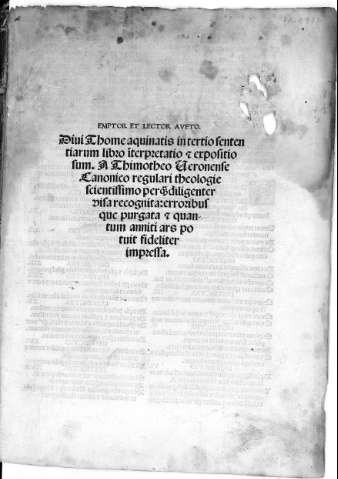 EMPTOR ET LECTOR AVETO.
Diui Thome aquinatis in tertio senten
tiarum libro īterpretatio ⁊ expositio
sum. A Thimotheo Veronense
Canonico regulari theologie
scientissimo perꝙ̄diligenter
visa recognita: erroribus
que purgata ⁊ quan-
tum anniti ars po
tuit fideliter
impressa.